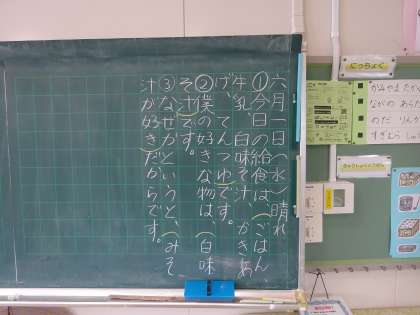 六月一日（水）晴れ
①今日の給食は、（ごはん
牛乳、白味そ汁、かきあ
げ、てんつゆ）です。
②僕の好きな物は、（白味
そ汁）です。
③なぜかというと、（みそ
汁が好き）だからです。
にっちょく
かみやま
ながの
のだ りんか
すぎむら